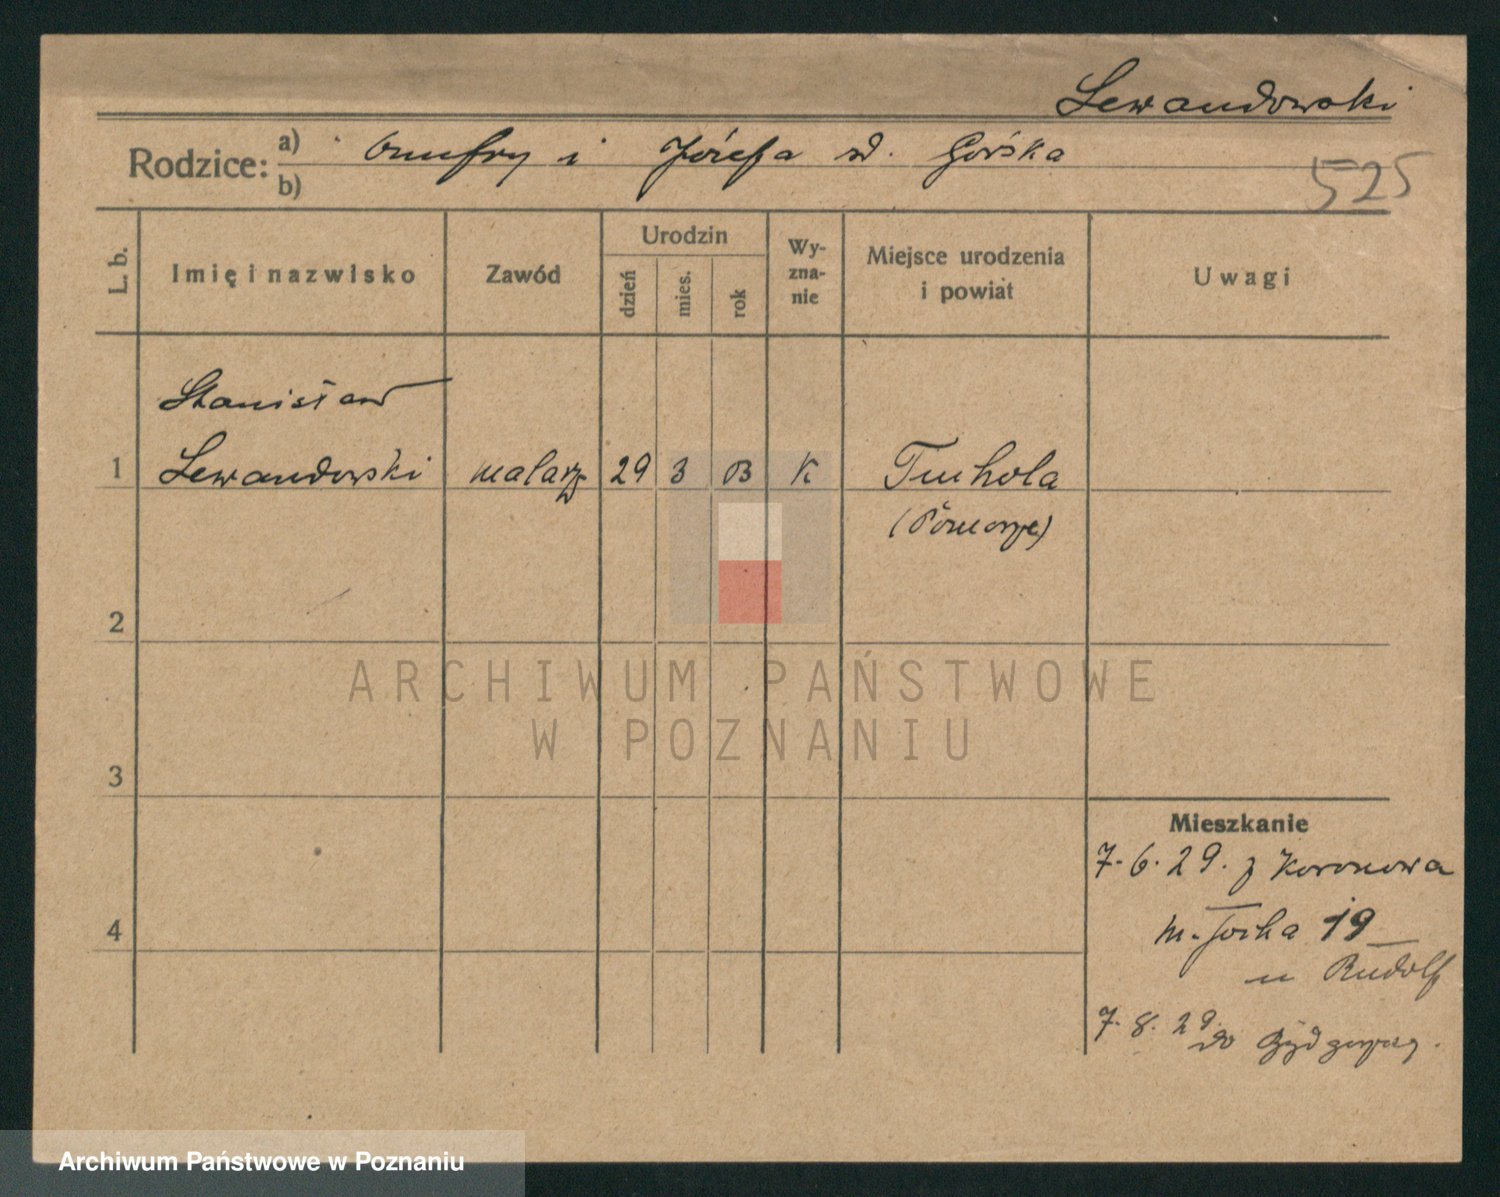 Lewandowski
Rodzice: a) Onufry i Józefa zd. Górska
b)
525
L. b.
Imię i nazwisko
Zawód
Urodzin
dzień
mies.
rok
Wy-
zna-
nie
Miejsce urodzenia
i powiat
Uwagi
Stanisław
1 Lewandowski malarz 29 3 K Tuchola
(Pomorze)
2
ARCHIWUM PAŃSTWOWE
W POZNANIU
3
Mieszkanie
7. 6. 29. z Koronowa
4
m. Focha 19
u Rudolf
7. 8. 29.
do Bydgoszczy.
Archiwum Państwowe w Poznaniu